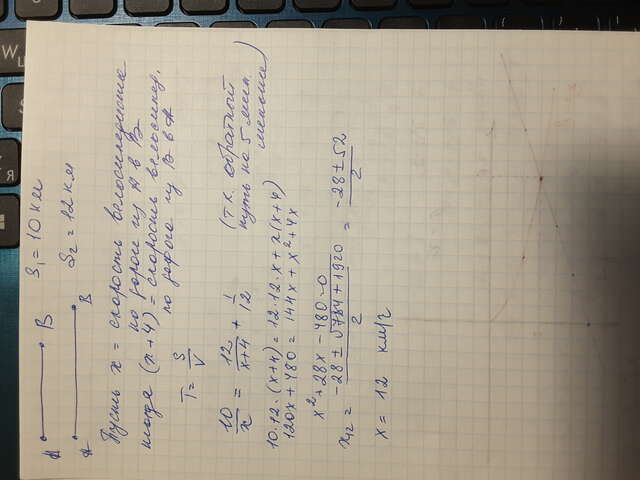 A B S₁ = 10 км
A B S₂ = 12 км
Пусть x = скорость велосипедиста
по дороге из A в B
тогда (x+4) = скорость велосипед.
по дороге из B в A
T = S/V
10/x = 12/(x+4) + 1/12 (т.к. обратный
путь на 5 мин
меньше)
10·12·(x+4) = 12·12·x + x(x+4)
120x + 480 = 144x + x² + 4x
x² + 28x - 480 = 0
x₁₂ = (-28 ± √784 + 1920)/2 = (-28 ± 52)/2
x = 12 км/г